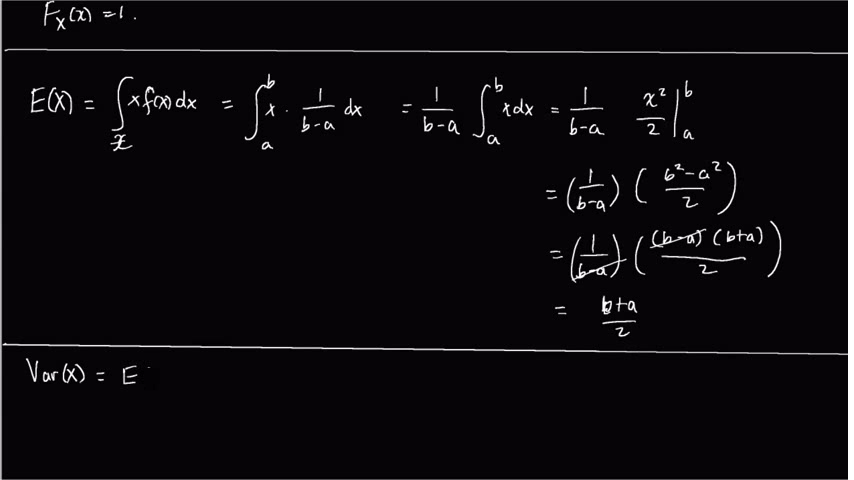 F_X(x) = 1.
E(X) = ∫_𝒳 x f(x) dx = ∫_a^b x · 1/(b-a) dx = 1/(b-a) ∫_a^b x dx = 1/(b-a) x²/2 |_a^b
= (1/(b-a)) ((b² - a²)/2)
= (1/(b-a)) ((b-a)(b+a)/2)
= (b+a)/2
Var(X) = E